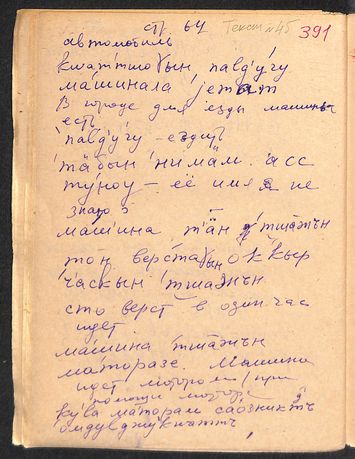 стр 64 Текст №45 391
автомобиль
кwаттшоɣын павд'угу
машинала jетат
В городе для езды машины
есть
павд'угу – ездить
табын нимам. асс
туноу – её имя я не
знаю
машина тӓн тшажын
тон верстаɣын оккыр
часкын тшажын
сто верст в один час
идет
машина тшажын
маторазе. Машина
идет мотором / при
помощи мотора
кува маторам